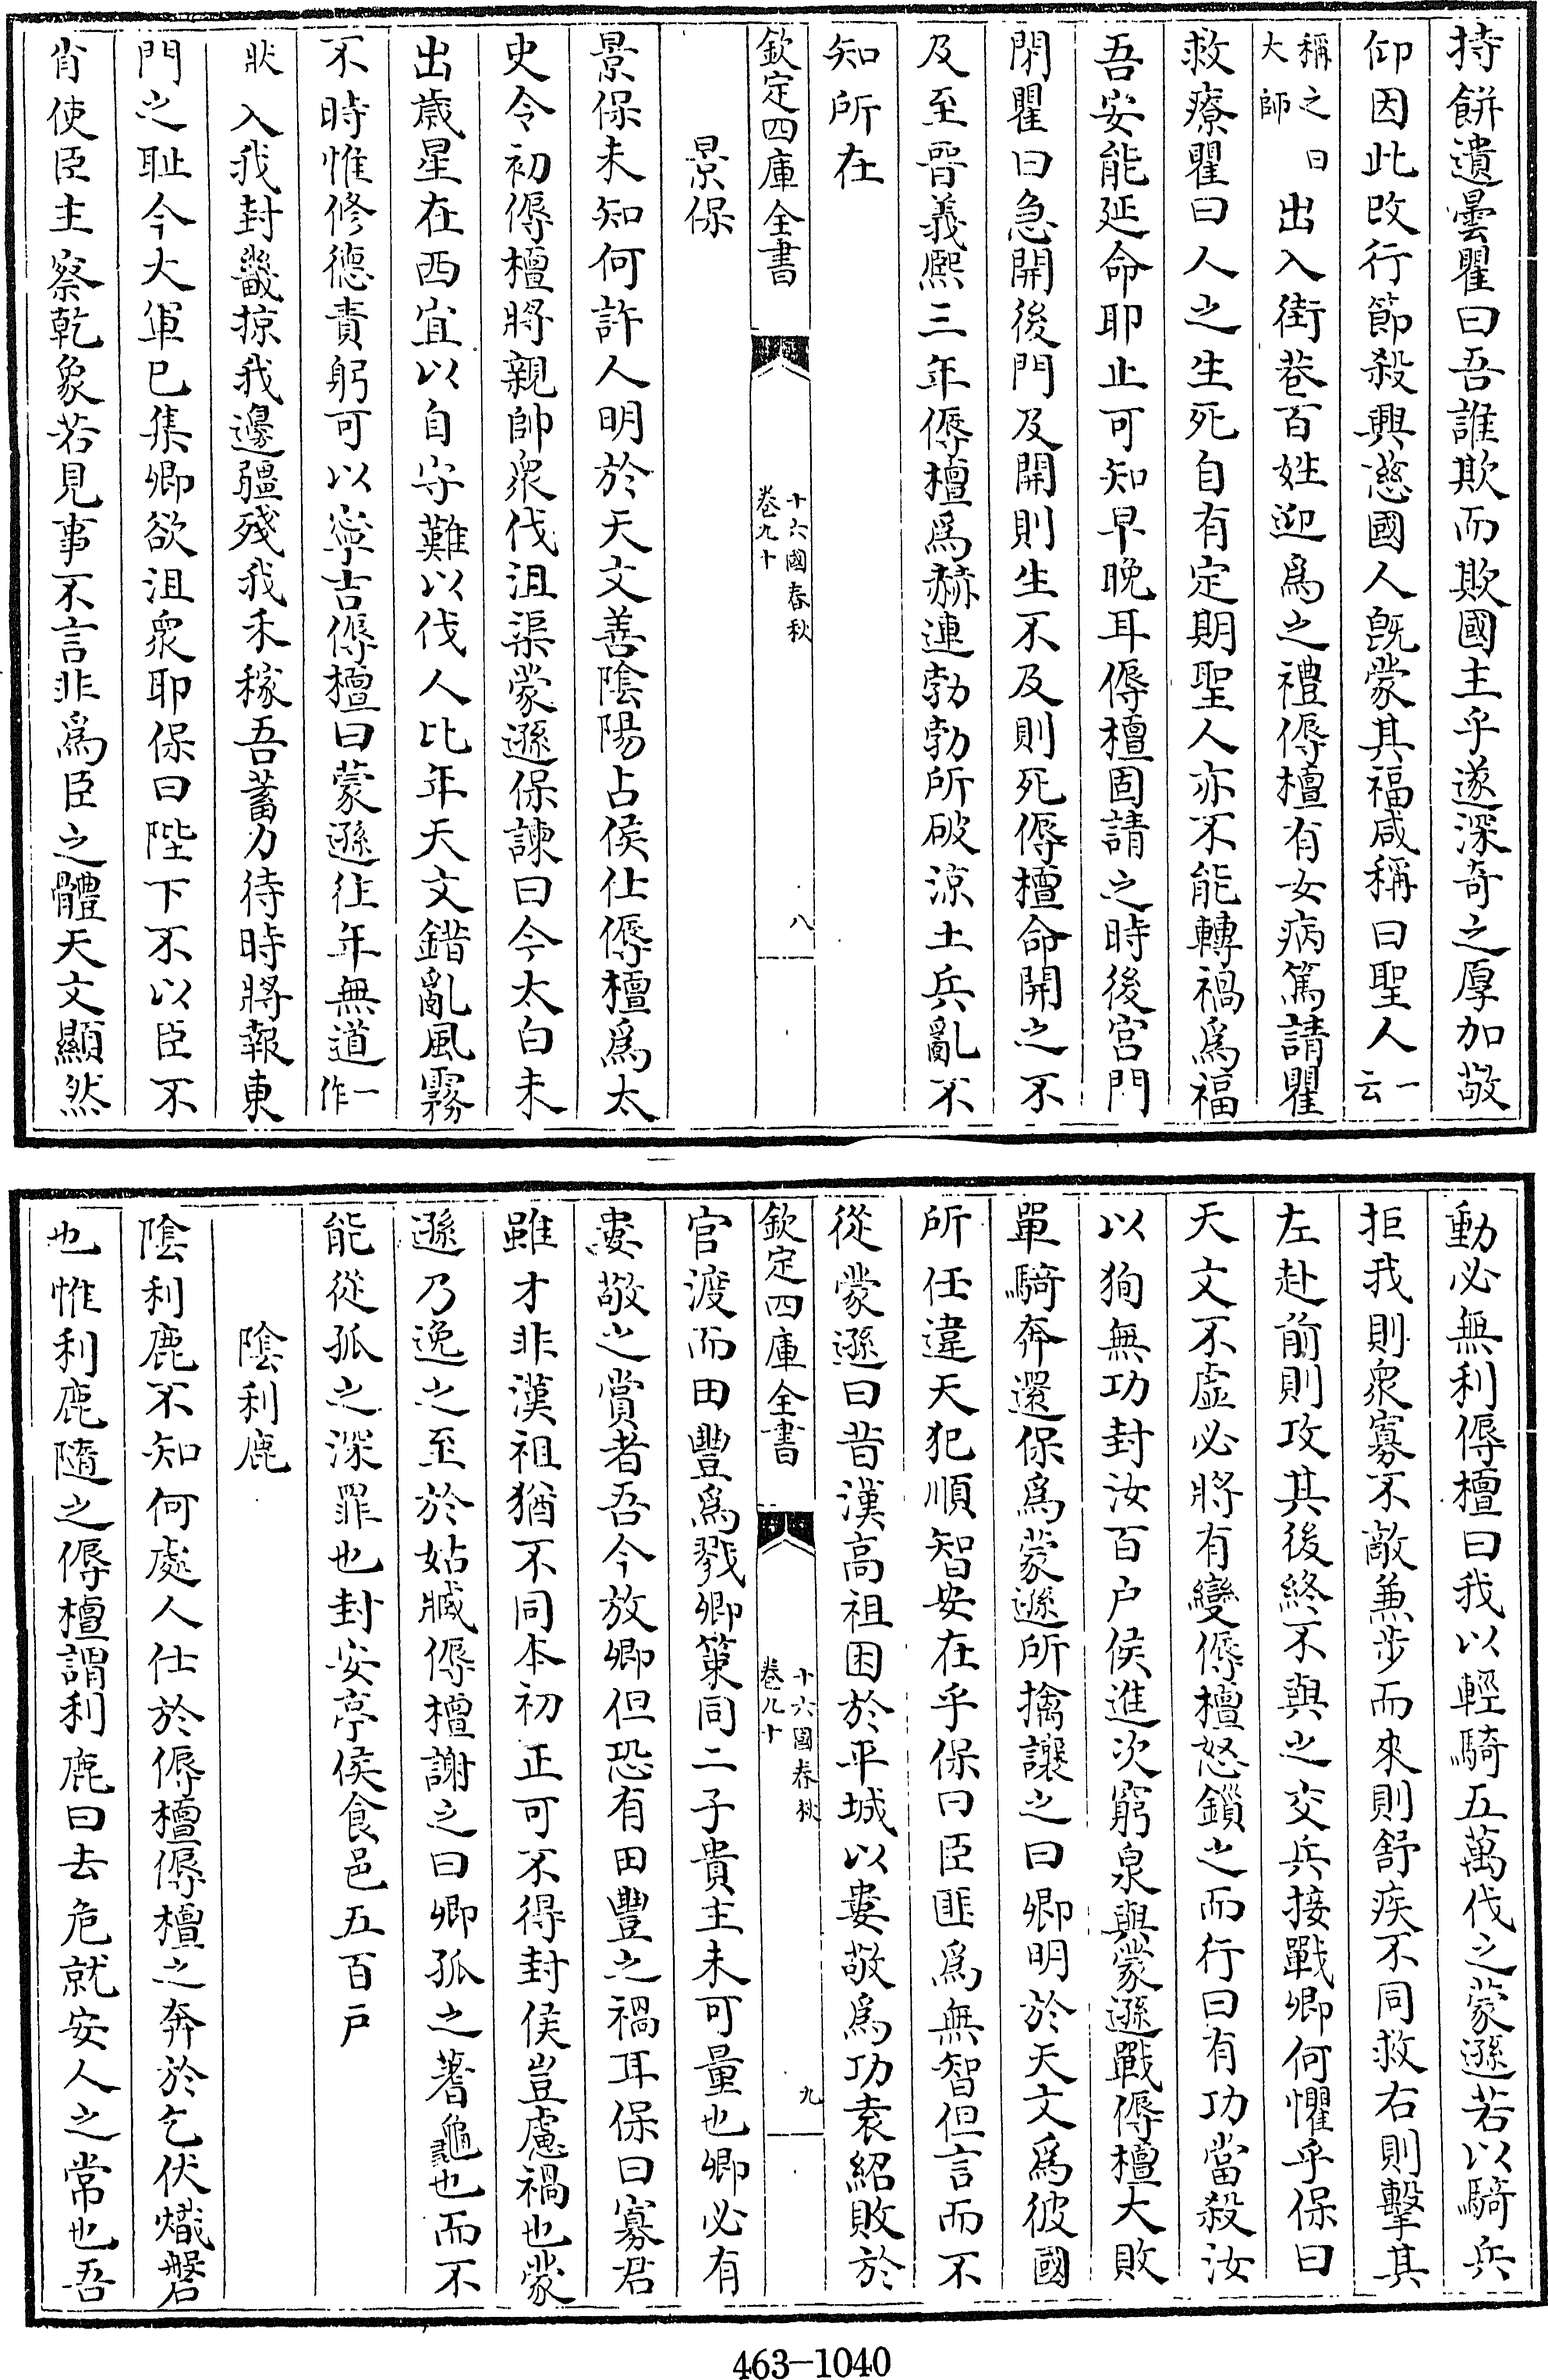 持餅遺曇瞿曰吾誰欺而欺國主乎遂深奇之厚加敬
仰因此改行節殺興慈國人旣蒙其福咸稱曰聖人一云
稱之曰大師出入街巷百姓迎爲之禮傉檀有女病篤請瞿
救療瞿曰人之生死自有定期聖人亦不能轉禍爲福
吾安能延命耶止可知早晚耳傉檀固請之時後宫門
閉瞿曰急開後門及開則生不及則死傉檀命開之不
及至晉義熙三年傉檀爲赫連勃勃所破涼土兵亂不
知所在
欽定四庫全書
十六國春秋
卷九十
八
景保
景保未知何許人明於天文善陰陽占侯仕傉檀爲太
史令初傉檀將親帥衆伐沮渠蒙遜保諫曰今太白未
出歲星在西宜以自守難以伐人比年天文錯亂風霧
不時惟修德責躬可以寧吉傉檀曰蒙遜往年無道一作
狀入我封畿掠我邊疆殘我禾稼吾蓄力待時將報東
門之耻今大軍已集卿欲沮衆耶保曰陛下不以臣不
肖使臣主察乾象若見事不言非爲臣之體天文顯然
動必無利傉檀曰我以輕騎五萬伐之蒙遜若以騎兵
拒我則衆寡不敵兼步而來則舒疾不同救右則擊其
左赴前則攻其後終不與之交兵接戰卿何懼乎保曰
天文不虛必將有變傉檀怒鎻之而行曰有功當殺汝
以狥無功封汝百户侯進次窮泉與蒙遜戰傉檀大敗
單騎奔還保爲蒙遜所擒讓之曰卿明於天文爲彼國
所任違天犯順智安在乎保曰臣匪爲無智但言而不
從蒙遜曰昔漢高祖困於平城以婁敬爲功袁紹敗於
欽定四庫全書
十六國春秋
卷九十
九
官渡而田豐爲戮卿策同二子貴主未可量也卿必有
婁敬之賞者吾今放卿但恐有田豐之禍耳保曰寡君
雖才非漢祖猶不同本初正可不得封侯豈慮禍也蒙
遜乃逸之至於姑臧傉檀謝之曰卿孤之蓍龜也而不
能從孤之深罪也封安亭侯食邑五百户
陰利鹿
陰利鹿不知何處人仕於傉檀傉檀之奔於乞伏熾磐
也惟利鹿隨之傉檀謂利鹿曰去危就安人之常也吾
463-1040